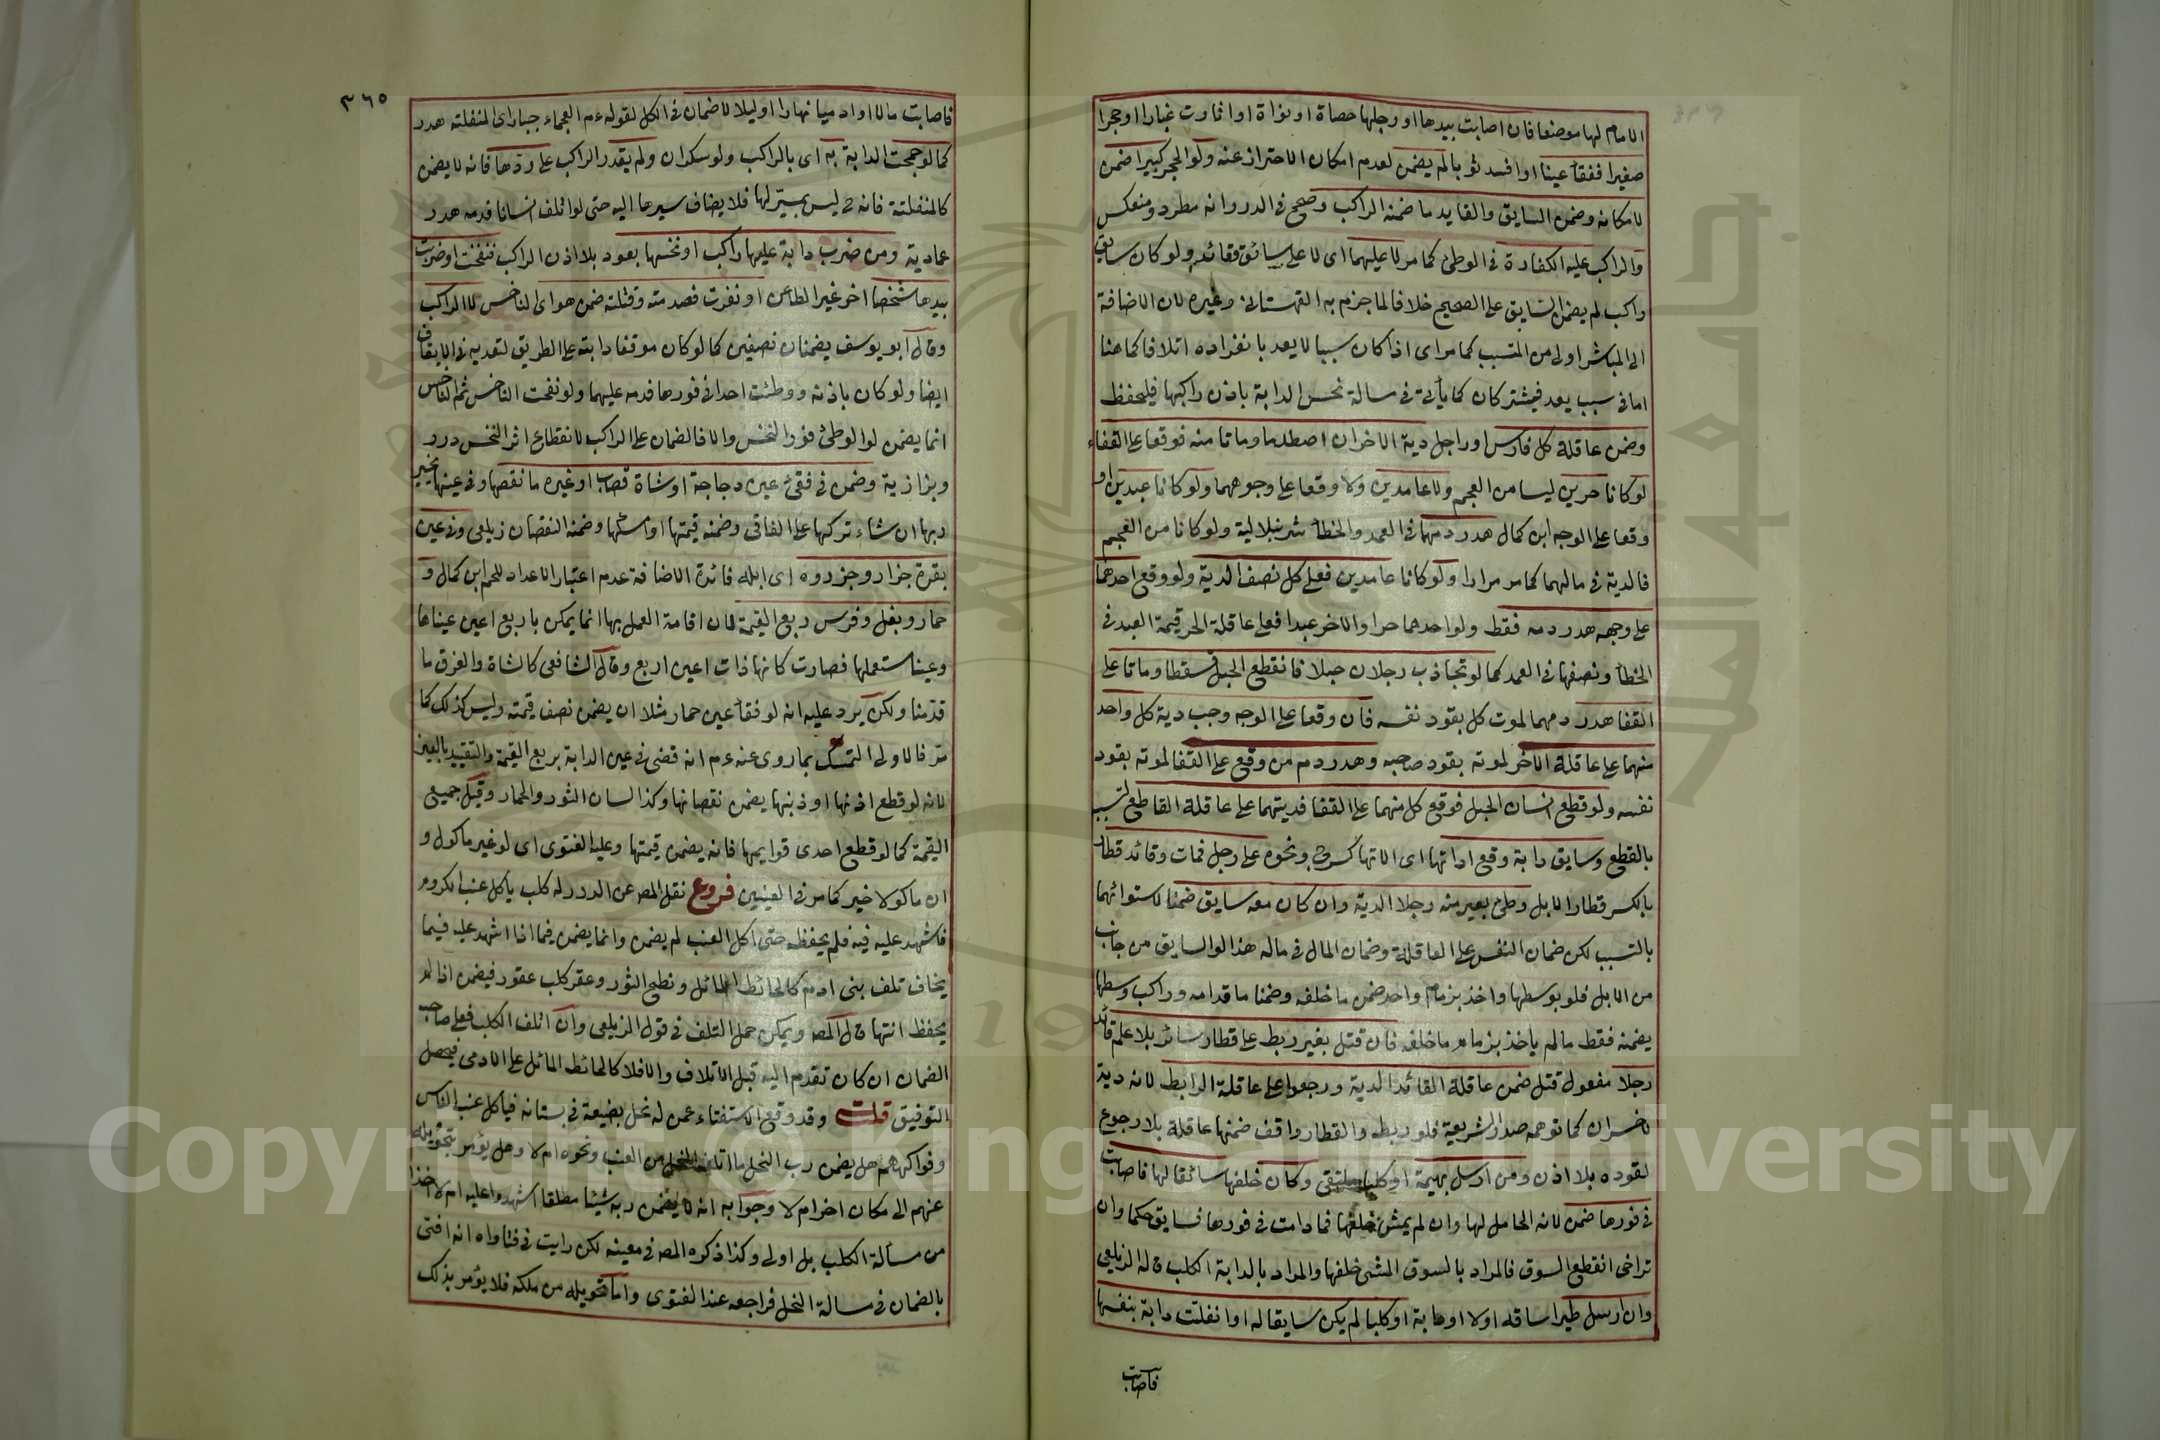 الامام لها موضعا فان اصابت بيدها او رجلها حصاة او نواة او اثارت غبارا او حجرا
صغيرا ففقأ عينا او افسد ثوبا لم يضمن لعدم امكان الاحتراز عنه ولو الحجر كبيرا ضمن
لامكانه وضمن السايق والقايد ما ضمنه الراكب وصحح في الدرر انه مطرد ومنعكس
والراكب عليه الكفارة في الوطئ كما مر لا عليهما اى لا على سائق وقائد ولو كان سايق
وراكب لم يضمن السايق على الصحيح خلافا لما جزم به القهستانى وغيره لان الاضافة
الى المباشر اولى من المتسبب كما مر اى اذا كان سببا لا يعد بانفراده اتلافا كما هنا
اما فى سبب يعد فيشتركان كما يأتى فى مسالة نخس الدابة باذن راكبها فليحفظ
وضمن عاقلة كل فارس او راجل دية الاخر ان اصطدما وماتا منه فوقعا على القفاء
لو كانا حرين ليسا من العجم ولا عامدين ولا وقعا على وجوههما ولو كانا عبدين او
وقعا على الوجه ابن كمال هدر دمهما فى العمد والخطأ شرنبلالية ولو كانا من العجم
فالدية فى مالهما كما مر مرارا ولو كانا عامدين فعلى كل نصف الدية ولو وقع احدهما
على وجهه هدر دمه فقط ولو احدهما حرا والاخر عبدا فعلى عاقلة الحر قيمة العبد فى
الخطأ ونصفها فى العمد كما لو تجاذب رجلان حبلا فانقطع الحبل فسقطا وماتا على
القفا هدر دمهما لموت كل بقود نفسه فان وقعا على الوجه وجب دية كل واحد
منهما على عاقلة الاخر لموته بقود صاحبه وهدر دم من وقع على القفا لموته بقود
نفسه ولو قطع انسان الحبل فوقع كل منهما على القفا فديتهما على عاقلة القاطع لتسببه
بالقطع وسايق دابة وقع اداتها اى الاتها كسرج ونحوه على رجل فمات وقائد قطار
بالكسر قطار الابل وطئ بعير منه رجلا الدية وان كان معه سايق ضمنا لاستوائهما
بالتسبب لكن ضمان النفس على العاقلة وضمان المال فى ماله هذا لو السايق من جانب
من الابل فلو بوسطها واخذ بزمام واحد ضمن ما خلفه وضمنا ما قدامه وراكب وسطها
يضمنه فقط مالم ياخذ بزمام ما خلفه فان قتل بغير ربط على قطار سائر بلا علم قائد
رجلا مفعول قتل ضمن عاقلة القائد الدية ورجعوا على عاقلة الرابط لانه دية
لا خسران كما توهمه صدر الشريعة فلو ربطه والقطار واقف ضمنها عاقلة بلا رجوع
لقوده بلا اذن ومن ارسل بهيمة او كلبا ملتقى وكان خلفها سائقا لها فاصابت
فى فورها ضمن لانه الحامل لها وان لم يمش خلفها فما دامت فى فورها فسايق حكما وان
تراخى انقطع السوق فالمراد بالسوق المشى خلفها والمراد بالدابة الكلب قاله الزيلعى
وان ارسل طيرا ساقه اولا او دابة او كلبا لم يكن سايقا له او انفلتت دابة بنفسها
فاصابت
٣٦٥
فاصابت مالا او ادميا نهارا او ليلا لا ضمان فى الكل لقوله عم العجماء جبار اى المنفلته هدر
كما لو جمحت الدابة به اى بالراكب ولو سكران ولم يقدر الراكب على ردها فانه لا يضمن
كالمنفلتة فانه ح ليس بمسير لها فلا يضاف سيرها اليه حتى لو اتلف انسانا فدمه هدر
عمادية ومن ضرب دابة عليها راكب او نخسها بعود بلا اذن الراكب فنفحت او ضربت
بيدها شخصا اخر غير الطاعن او نفرت فصدمته وقتلته ضمن هو اى الناخس لا الراكب
وقال ابو يوسف يضمنان نصفين كما لو كان موقفا دابته على الطريق لتعديه فى الايقاف
ايضا ولو كان باذنه ووطئت احدا فى فورها فدمه عليهما ولو نفحت الناخس ثم الناخس
انما يضمن لو الوطئ فور النخس والا فالضمان على الراكب لانقطاع اثر النخس درر
وبزازية وضمن فى فقئ عين دجاجة او شاة قصاب او غيره ما نقصها وفى عينها يخير
ربها ان شاء تركها على الفاقى وضمنه قيمتها او امسكها وضمنه النقصان زيلعى وفى عين
بقرة جزار وجزوره اى ابله فائدة الاضافة عدم اعتبار الاعداد للحم ابن كمال و
حمار وبغل وفرس ربع القيمة لان اقامة العمل بها انما يمكن باربع اعين عيناها
وعينا مستعملها فصارت كانها ذات اعين اربع وقال الشافعى كالشاة والفرق ما
قدمنا ولكن يرد عليه انه لو فقأ عين حمار مثلا ان يضمن نصف قيمته وليس كذلك كما
مر فالاولى التمسك بما روى عنه عم انه قضى فى عين الدابة بربع القيمة والتقييد بالعين
لانه لو قطع اذنها او ذنبها يضمن نقصانها وكذا لسان الثور والحمار وقيل جميع
القيمة كما لو قطع احدى قوايمها فانه يضمن قيمتها وعليه الفتوى اى لو غير ماكول و
ان ماكولا خير كما مر فى العينين فروع نقل المص عن الدرر له كلب ياكل عنب الكروم
فاشهد عليه فيه فلم يحفظه حتى اكل العنب لم يضمن وانما يضمن فيما اذا اشهد عليه فيما
يخاف تلف بنى ادم كالحائط المائل ونطح الثور وعقر كلب عقور فيضمن اذا لم
يحفظ انتهى قال المص ويمكن حمل التلف فى قول الزيلعى وان اتلف الكلب فعلى صاحبه
الضمان ان كان تقدم اليه قبل الاتلاف والا فلا كالحائط المائل على الادمى فيحصل
التوفيق قلت وقد وقع الاستفتاء عمن له نحل بضيعة فى بستانه فياكل عنب الناس
وفواكههم هل يضمن رب النحل ما اتلف النحل من العنب ونحوه ام لا وهل يؤمر بتحويله
عنهم الى مكان اخر ام لا وجوابه انه لا يضمن ربه شيئا مطلقا اشهدوا عليه ام لا اخذا
من مسألة الكلب بل اولى وكذا ذكره المص فى معينه لكن رايت فى فتاواه انه افتى
بالضمان فى مسالة النحل فراجعه عند الفتوى واما تحويله من ملكه فلا يؤمر بذلك
Copyright © King Saud University
جامعة الملك سعود